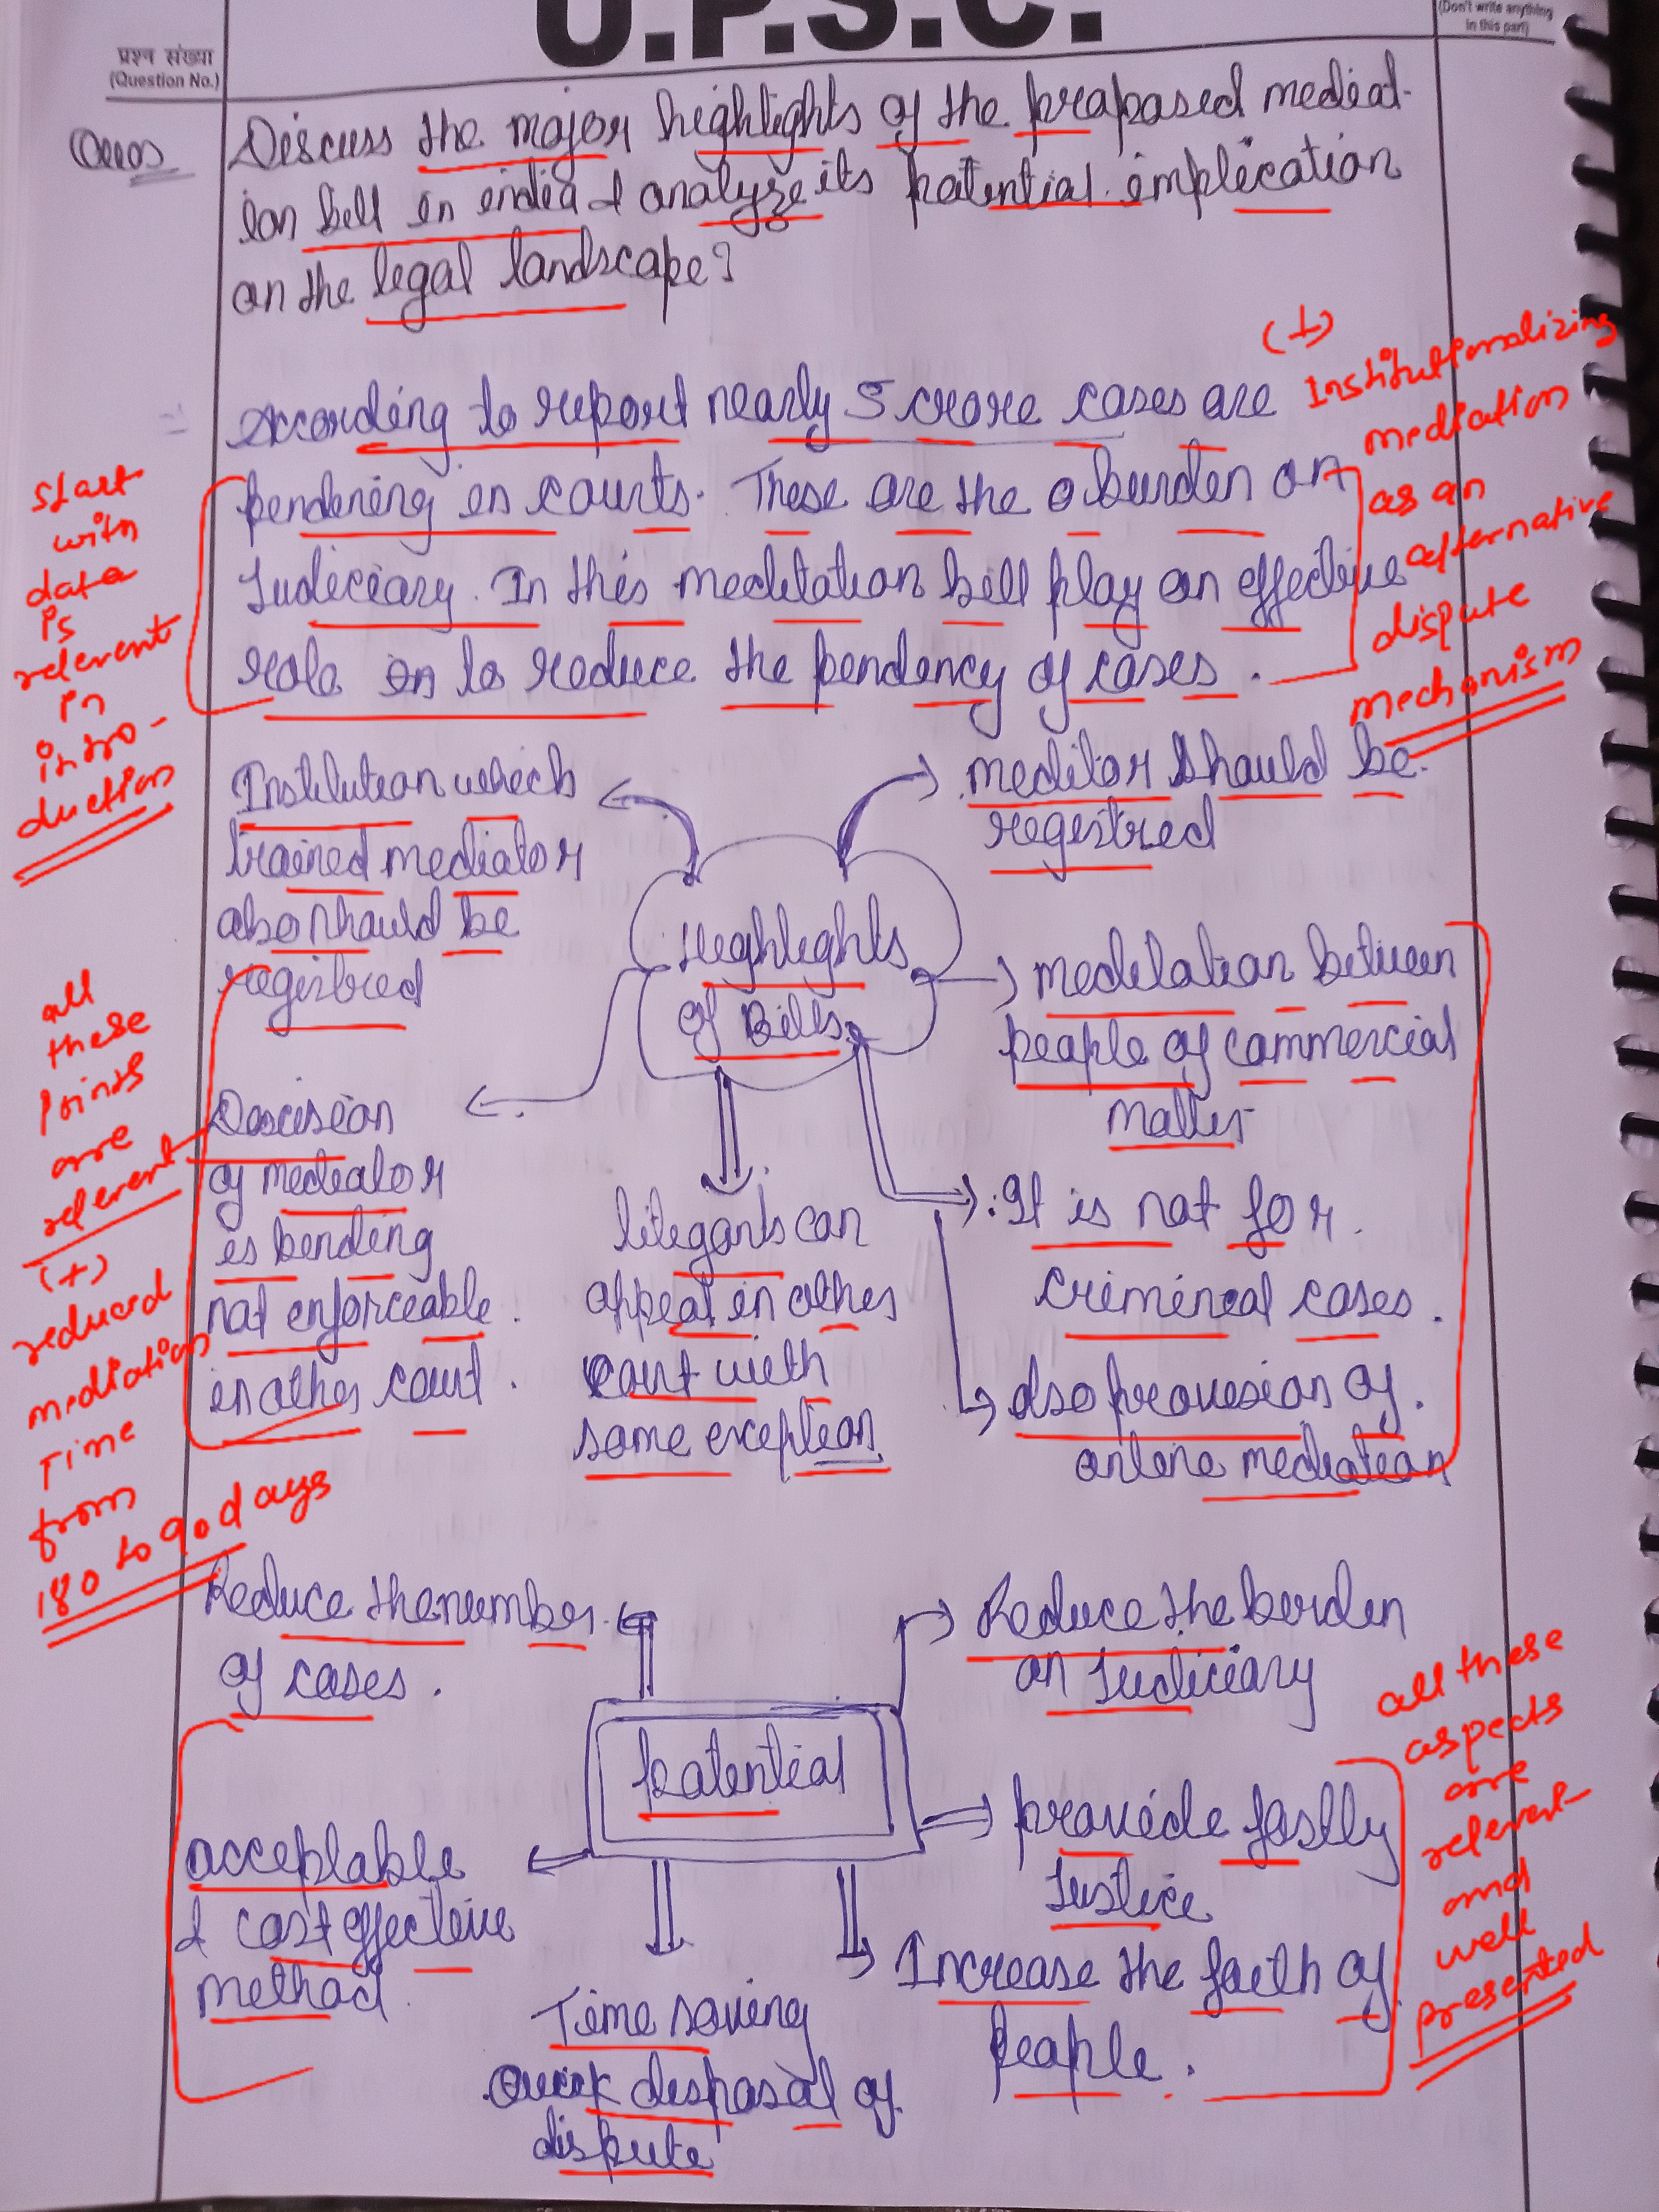 U.P.S.C.
(Don't write anything
in this part)
प्रश्न संख्या
(Question No.)
Ques
Discuss the major highlights of the proposed mediat-
ion bill in india & analyze its potential implication
on the legal landscape?
According to report nearly 5 crore cases are
pendening in courts. These are the burden on
Judiciary. In this meditation bill play an effective
role in to reduce the pendency of cases.
start
with
data
is
relevent
in
intro-
duction
(+)
Institutionalizing
mediation
as an
alternative
dispute
mechanism
Institution which
trained mediator
also should be
registred
meditor should be
registred
Highlights
of Bills
meditation between
people of commercial
matter
Descision
of mediator
is bending
not enforceable
in other court.
litegants can
appeal in other
court with
some exception
It is not for
crimineal cases.
also provesion of
online mediation
all
these
points
are
relevent
(+)
reduced
mediation
Time
from
180 to 90 days
Reduce the number
of cases.
Reduce the borden
on Judiciary
potential
acceptable
& cost effective
method
provide fastly
Justice
Time saving
Quick disposal of
dispute
Increase the faith of
people.
all these
aspects
are
relevent
and
well
presented